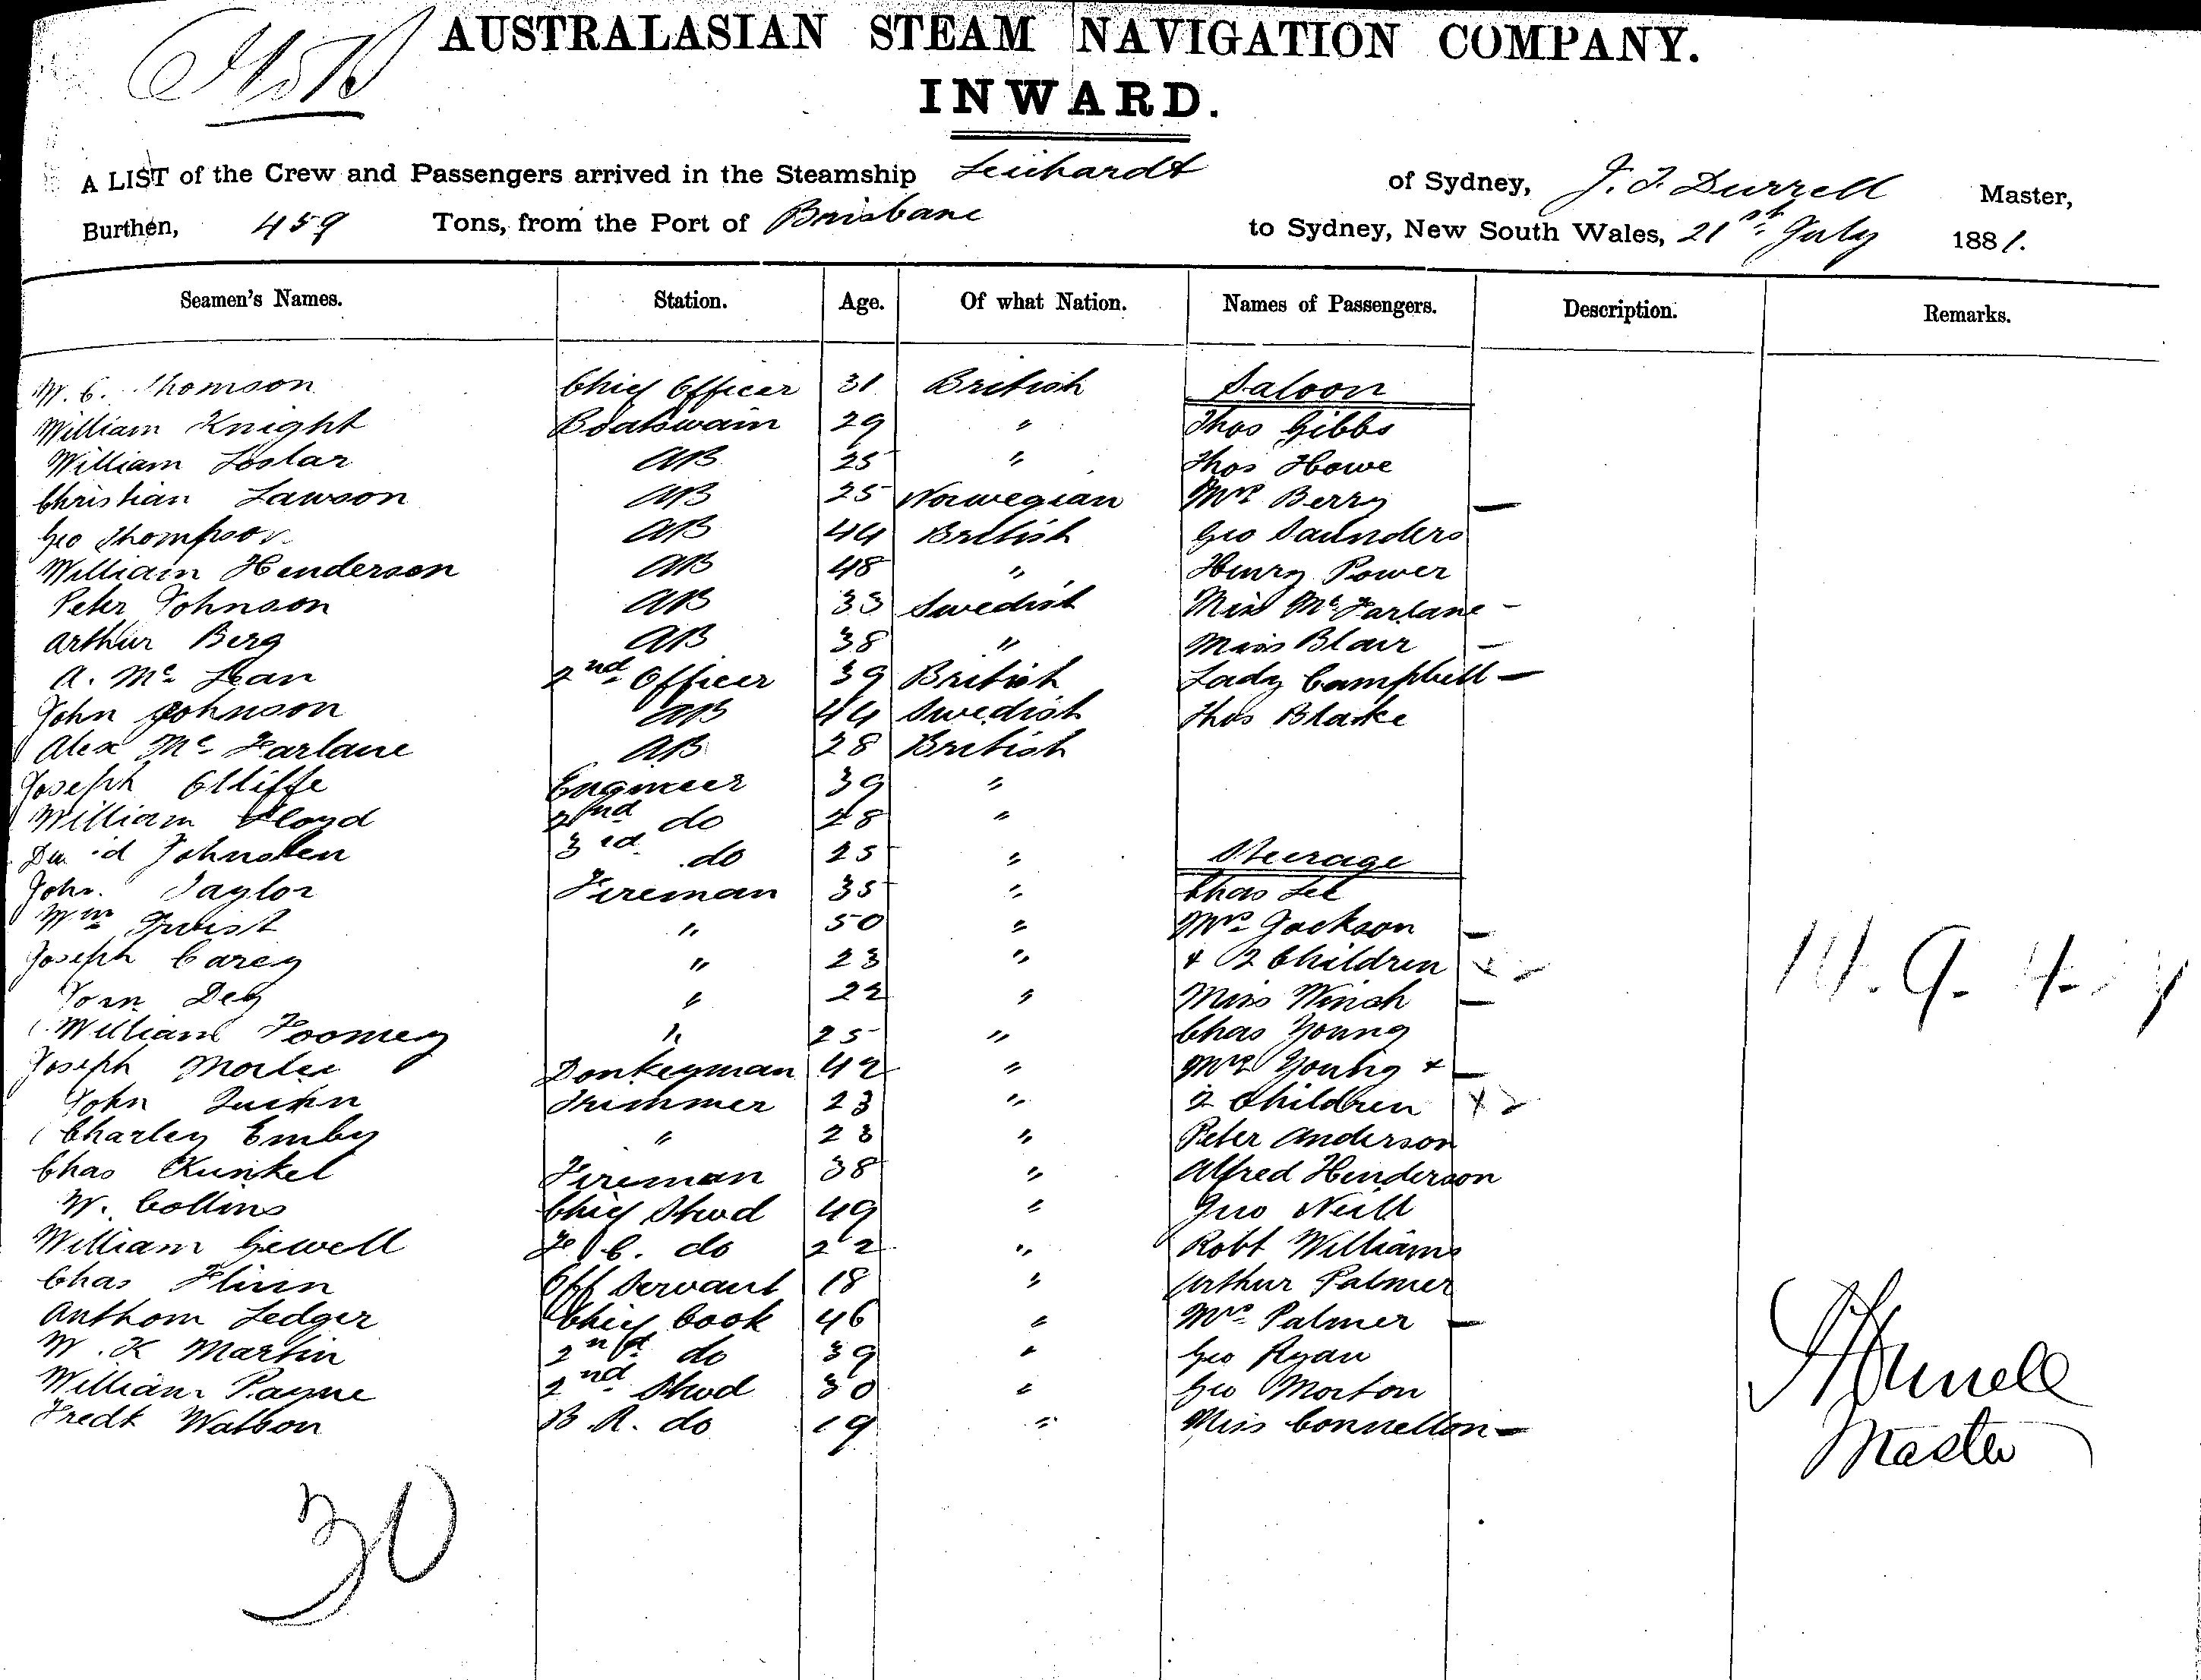 AUSTRALASIAN STEAM NAVIGATION COMPANY.
INWARD.
A LIST of the Crew and Passengers arrived in the Steamship Leichardt of Sydney, J. T. Durrell Master,
Burthen, 459 Tons, from the Port of Brisbane to Sydney, New South Wales, 21st July 1881.
Seamen's Names. Station. Age. Of what Nation. Names of Passengers. Description. Remarks.
W. C. Thomson Chief Officer 31 British Saloon
William Knight Boatswain 29 " Thos Gibbs
William Loslar AB 25 " Thos Howe
Christian Lawson AB 25 Norwegian Mrs Berry —
Geo Thompson AB 44 British Geo Saunders
William Henderson AB 48 " Henry Power
Peter Johnson AB 33 Swedish Miss McFarlane -
Arthur Berg AB 38 " Miss Blair —
A. Mc Lean 2nd Officer 39 British Lady Campbell —
John Johnson AB 44 Swedish Thos Blake
Alex Mc Farlane AB 28 British
Joseph Elliffe Engineer 39 "
William Lloyd 2nd do 28 "
David Johnston 3rd do 25 " Steerage
John Taylor Fireman 35 " Chas Lee
Wm Twist " 50 " Mrs Jackson —
Joseph Carey " 23 " + 2 Children x 2
Dey " 22 " Miss Winch —
William Toomey " 25 " Chas Young
Joseph Donkeyman 42 " Mrs Young + —
John Quinn Trimmer 23 " 2 Children x 2
Charley Emby " 23 " Peter Anderson
Chas Kunkel Fireman 38 " Alfred Henderson
W. Collins Chief Stwd 49 " Geo Neill
William Gewell F. C. do 22 " Robt Williams
Chas Flinn Off Servant 18 " Arthur Palmer
Anthom Ledger Chief Cook 46 " Mrs Palmer —
W. K Martin 2nd do 39 " Geo Ryan
William Payne 2nd Stwd 30 " Geo Morton
Fredk Watson B. R. do 19 " Miss Connellon —
14. 9. 4.
J T Durrell
Master
30